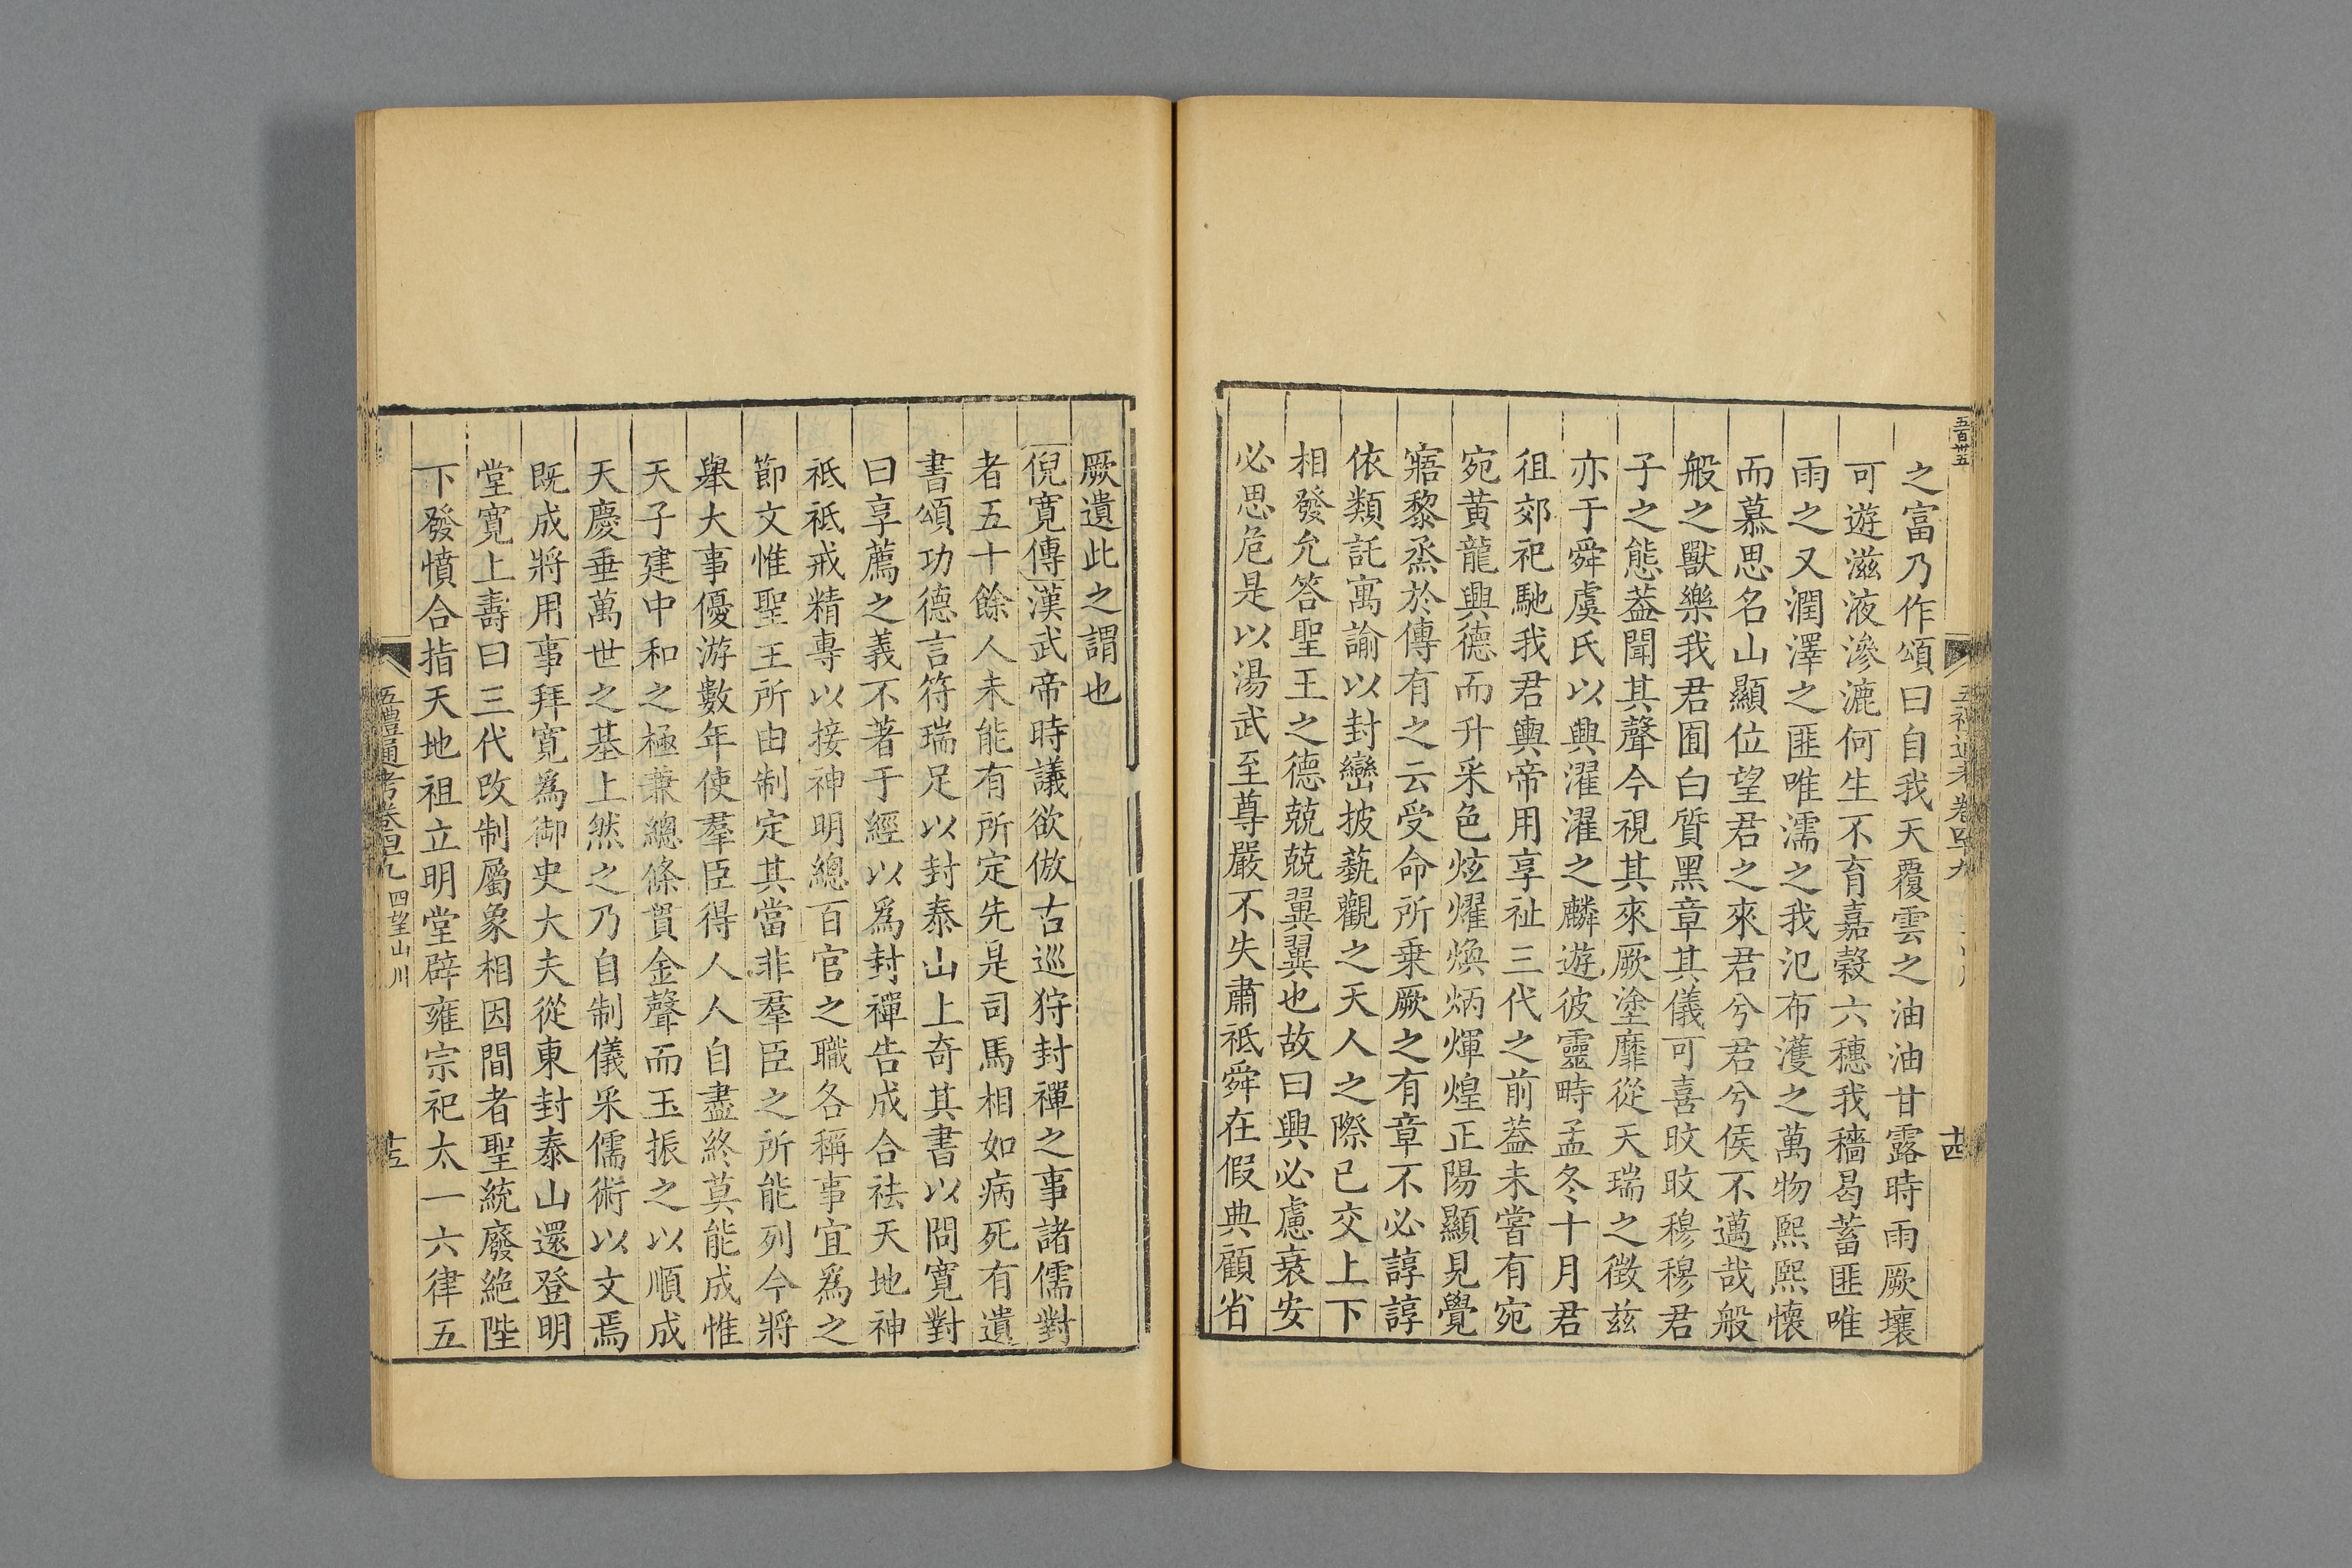 五百卅五
五禮通考卷四十九
十四
之富乃作頌曰自我天覆雲之油油甘露時雨厥壤
可遊滋液滲漉何生不育嘉穀六穗我穡曷蓄匪唯
雨之又潤澤之匪唯濡之我氾布濩之萬物熙熙懷
而慕思名山顯位望君之來君兮君兮侯不邁哉般
般之獸樂我君囿白質黑章其儀可喜旼旼穆穆君
子之態葢聞其聲今視其來厥塗靡從天瑞之徵茲
亦于舜虞氏以興濯濯之麟遊彼靈畤孟冬十月君
徂郊祀馳我君輿帝用享祉三代之前葢未嘗有宛
宛黃龍興德而升采色炫燿煥炳煇煌正陽顯見覺
寤黎烝於傳有之云受命所乗厥之有章不必諄諄
依類託寓諭以封巒披藝觀之天人之際已交上下
相發允答聖王之德兢兢翼翼也故曰興必慮衰安
必思危是以湯武至尊嚴不失肅祗舜在假典顧省
厥遺此之謂也
倪寛傳漢武帝時議欲倣古巡狩封禪之事諸儒對
者五十餘人未能有所定先是司馬相如病死有遺
書頌功德言符瑞足以封泰山上奇其書以問寛對
曰享薦之義不著于經以爲封禪告成合祛天地神
祗祗戒精專以接神明總百官之職各稱事宜爲之
節文惟聖王所由制定其當非羣臣之所能列今將
舉大事優游數年使羣臣得人人自盡終莫能成惟
天子建中和之極兼總條貫金聲而玉振之以順成
天慶垂萬世之基上然之乃自制儀采儒術以文焉
既成將用事拜寛爲御史大夫從東封泰山還登明
堂寛上壽曰三代改制屬象相因間者聖統廢絶陛
下發憤合指天地祖立明堂辟雍宗祀太一六律五
五禮通考卷四十九 四望山川
十五